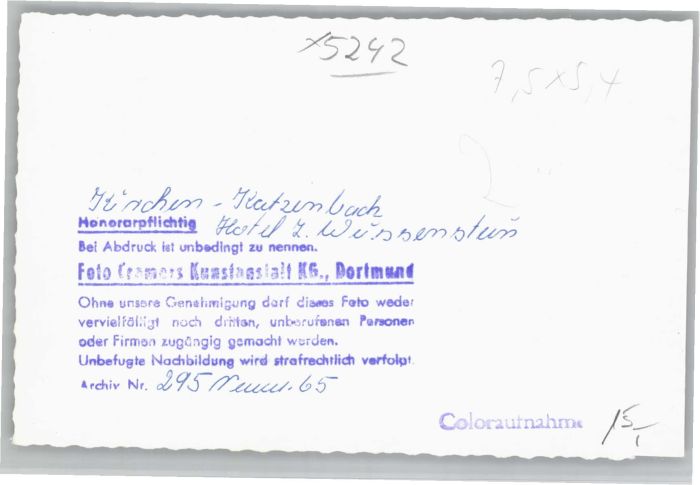 x5242
7,5x5,4
2
Kirchen - Katzenbach
Honorarpflichtig Hotel z. Weissenstein
Bei Abdruck ist unbedingt zu nennen.
Foto Cramers Kunstanstalt KG., Dortmund
Ohne unsere Genehmigung darf dieses Foto weder
vervielfältigt noch dritten, unberufenen Personen
oder Firmen zugängig gemacht werden.
Unbefugte Nachbildung wird strafrechtlich verfolgt.
Archiv Nr. 295 65
Coloraufnahme
15,-